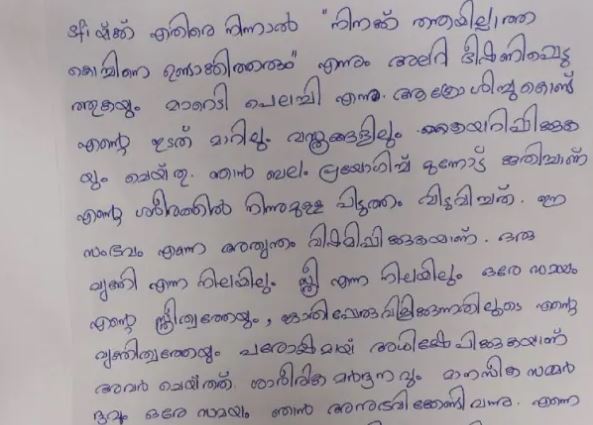 sfi യ്ക്ക് എതിരെ നിന്നാൽ "നിനക്ക് തന്തയില്ലാത്ത
കൊച്ചിനെ ഉണ്ടാക്കിത്തരും" എന്നും അലറി ഭീഷണിപ്പെടു
ത്തുകയും മാറെടി പെലച്ചി എന്നും ആക്രോശിച്ചുകൊണ്ട്
എന്റെ ഇടത് മാറിലും വസ്ത്രങ്ങളിലും കയറിപ്പിടിക്കുക
യും ചെയ്തു. ഞാൻ ബലം പ്രയോഗിച്ച് മുന്നോട്ട് കുതിച്ചാണ്
എന്റെ ശരീരത്തിൽ നിന്നുമുള്ള പിടുത്തം വിടുവിച്ചത്. ഈ
സംഭവം എന്നെ അത്യന്തം വിഷമിപ്പിക്കുകയാണ്. ഒരു
വ്യക്തി എന്ന നിലയിലും സ്ത്രീ എന്ന നിലയിലും ഒരേ സമയം
എന്റെ സ്ത്രീത്വത്തേയും, ജാതിപ്പേരു വിളിക്കുന്നതിലൂടെ എന്റെ
വ്യക്തിത്വത്തേയും പരോക്ഷമായി അധിക്ഷേപിക്കുകയാണ്
അവർ ചെയ്തത്. ശാരീരിക മർദ്ദനവും മാനസിക സമ്മർ
ദ്ദവും ഒരേ സമയം ഞാൻ അനുഭവിക്കേണ്ടി വന്നു. എന്നെ